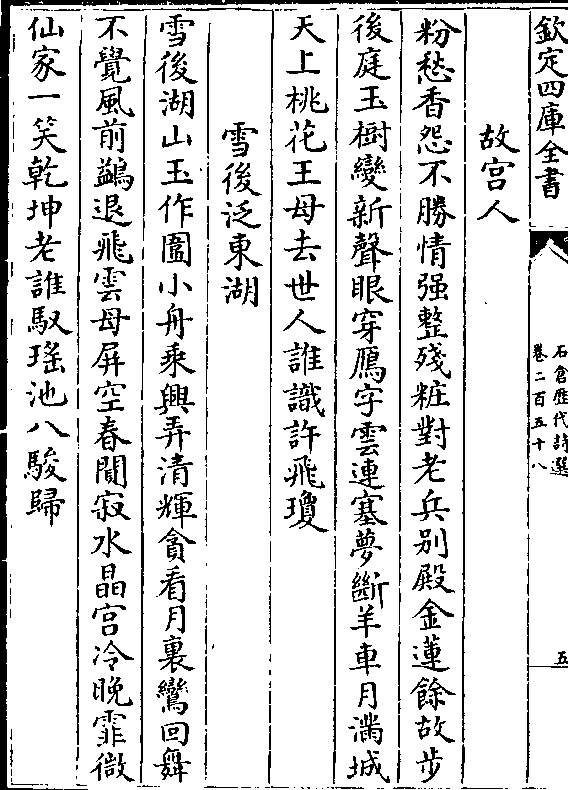 欽定四庫全書
石倉歴代詩選
卷二百五十八
五
故宫人
粉愁香怨不勝情强整殘粧對老兵别殿金蓮餘故步
後庭玉樹變新聲眼穿鴈字雲連塞夢斷羊車月滿城
天上桃花王母去世人誰識許飛瓊
雪後泛東湖
雪後湖山玉作圍小舟乘興弄清輝貪看月裏鸞回舞
不覺風前鷁退飛雲母屏空春閴寂水晶宫冷晩霏微
仙家一笑乾坤老誰馭瑶池八駿歸